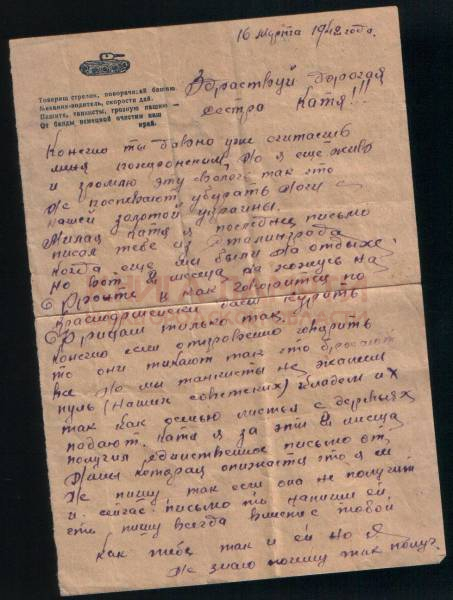 16 марта 1942 года.
Товарищ стрелок, поворачивай башню.
Механик-водитель, скорости дай.
Пашите, танкисты, грозную пашню —
От банды немецкой очистим наш
край.
Здраствуй дорогая
сестра Катя!!!
Конешно ты давно уже считаешь
меня похороненым. Но я ещё живой
и громлю эту сволоч так что
не поспевают убирать ноги с
нашей золотой украины.
Милая Катя я последнее письмо
писал тебе из Сталинграда
когда ещё мы были на отдыхе,
но вот месяца я нахожусь на
Фронте и как говорится по
Красноармейски даем курить
Фрицам только так.
Конешно если откровенно говорить
то они тикают так что бросают
все. Но мы танкисты не жалеем
пуль (наших советских) кладем их
так как осенью листья с деревьях
падают. Катя я за эти месяца
получил единственное письмо от
Нины которая опижается что я ей
не пишу так если она не получит
и сейчас письмо ты напиши ей
что пишу всегда вместе с тобой
как тебе так и ей но я
не знаю почему так получ